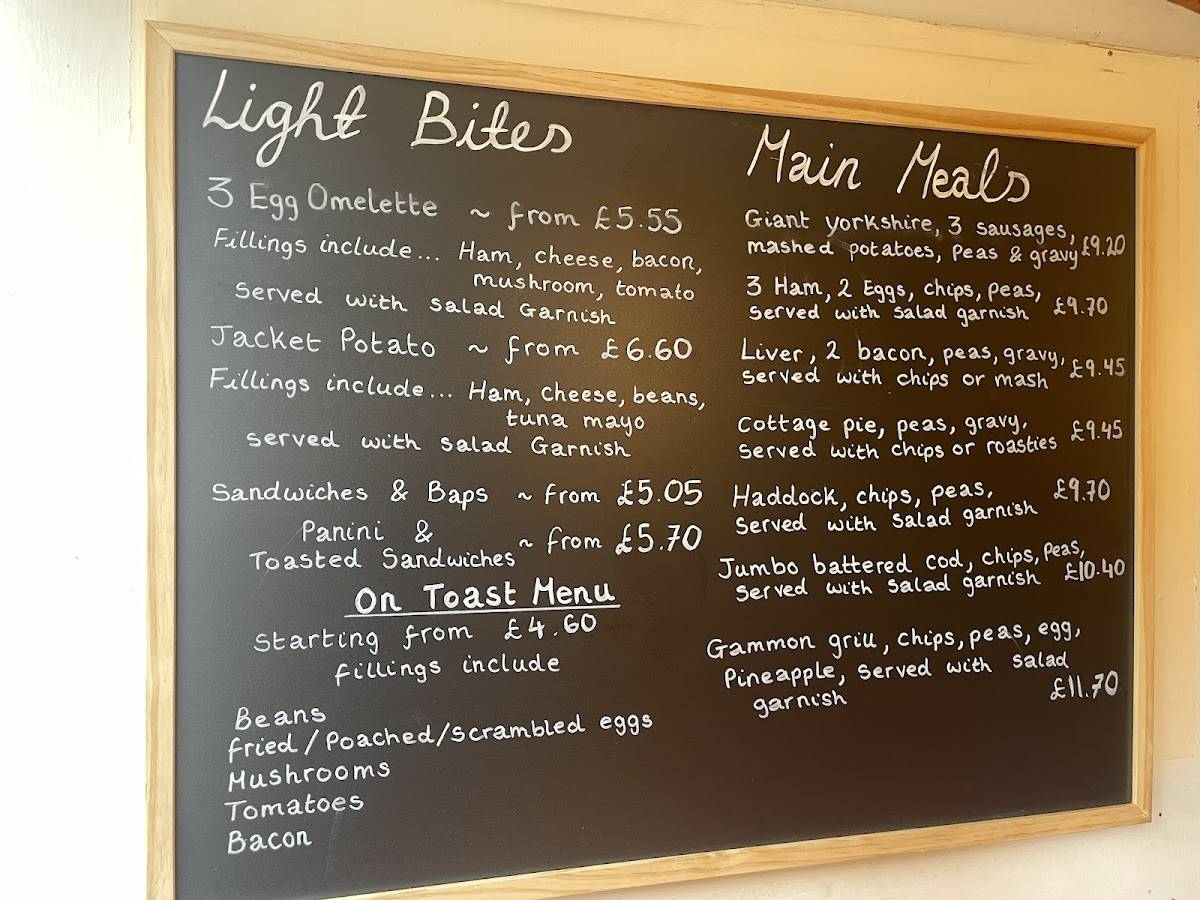 Light Bites
3 Egg Omelette ~ from £5.55
Fillings include... Ham, cheese, bacon,
mushroom, tomato
Served with Salad Garnish
Jacket Potato ~ from £6.60
Fillings include... Ham, cheese, beans,
tuna mayo
served with salad Garnish
Sandwiches & Baps ~ from £5.05
Panini &
Toasted Sandwiches ~ from £5.70
On Toast Menu
Starting from £4.60
fillings include
Beans
fried/Poached/Scrambled eggs
Mushrooms
Tomatoes
Bacon
Main Meals
Giant yorkshire, 3 sausages,
mashed potatoes, Peas & gravy £9.20
3 Ham, 2 Eggs, chips, peas,
served with salad garnish £9.70
Liver, 2 bacon, peas, gravy,
served with chips or mash £9.45
Cottage pie, peas, gravy,
Served with chips or roasties £9.45
Haddock, chips, peas,
served with salad garnish £9.70
Jumbo battered cod, chips, Peas,
served with salad garnish £10.40
Gammon grill, chips, peas, egg,
Pineapple, served with salad
garnish £11.70